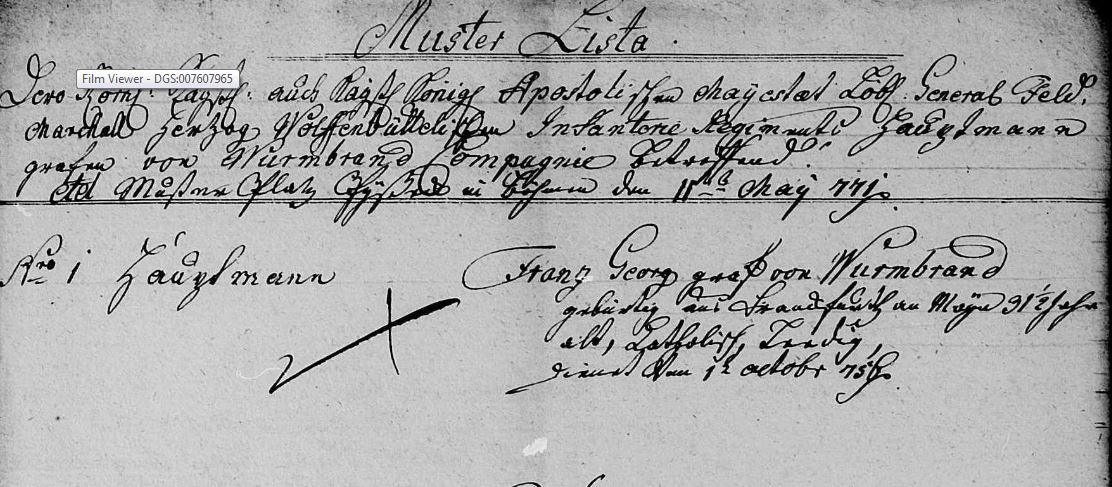 Muster Lista.
Film Viewer - DGS:007607965
Dero Röm: Kaysl: auch Kaysl Königl Apostolischen Mayestät Löbl: General Feld.
Marchall Hertzog Wolffenbüttelischen Infanterie Regiments Haubtmann
grafen von Wurmbrand Compagnie betreffend.
Muster Platz in Böhmen den 11ten May 771.
Nro 1 Haubtmann Franz Georg graf von Wurmbrand
gebürtig aus Franckfurth an Mayn 31 1/2 Jahr
alt, Catholisch, Leedig,
dienet Von 1t octobr 756.